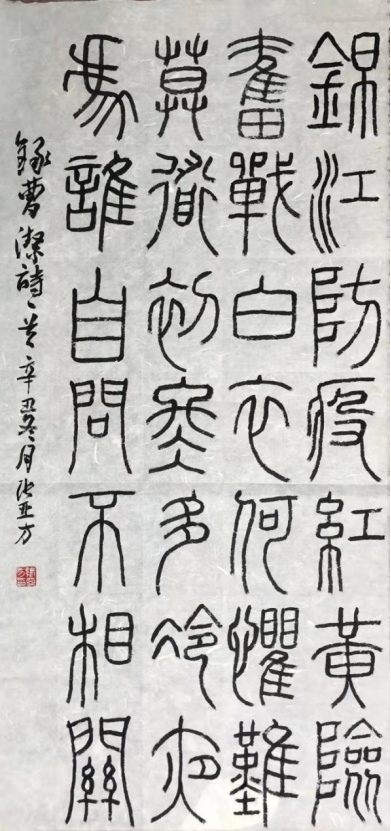 錦江防疫紅黃險
奮戰白衣何懼難
莫道初寒多冷夜
為誰自問不相關
錄曹潔詩一首 辛丑冬月张亚方